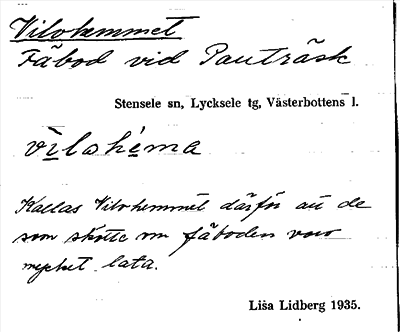 Vilohemmet
Fäbod vid Pauträsk
Stensele sn, Lycksele tg, Västerbottens l.
vìlohéma
Kallas Vilohemmet därför att de
som skötte om fäboden voro
mycket lata.
Lisa Lidberg 1935.